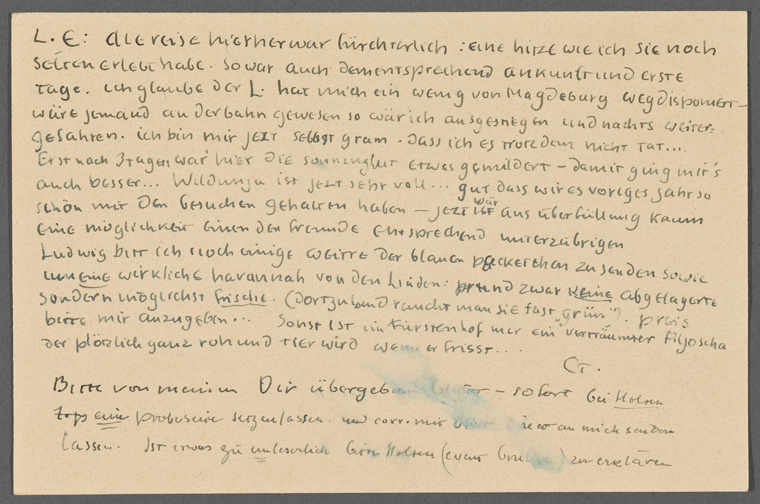 L. E: die reise hierher war fürchterlich: eine hitze wie ich sie noch
selten erlebt habe. so war auch dementsprechend ankunft und erste
tage. ich glaube der L. hat mich ein wenig von Magdeburg wegdisponiert –
wäre jemand an der bahn gewesen so wär ich ausgestiegen und nachts weiter-
gefahren. ich bin mir jetzt selbst gram. dass ich es trotzdem nicht tat...
Erst nach 3 tagen war hier die sonnenglut etwas gemildert – damit ging mir's
auch besser... Wildungen ist jetzt sehr voll... gut dass wir es voriges jahr so
schön mit den besuchen gehalten haben – jetzt wär aus überfüllung kaum
eine möglichkeit einen der freunde entsprechend unterzubrigen
Ludwig bitt ich noch einige weitre der blauen packetchen zu senden sowie
um eine wirkliche havannah von den Linden: und zwar keine abgelagerte
sondern möglichst frische. (dortzuland raucht man sie fast „grün"). preis
bitte mir anzugeben... Sonst ist im Fürstenhof nur ein verträumter Aljoscha
der plötzlich ganz roh und tier wird wenn er frisst...
Bitte von meinem Dir – sofort bei Holten
eine probeseite setzen lassen. und corr. mit an mich senden
lassen. Ist etwas zu unleserlich bitte Holten zu erklären